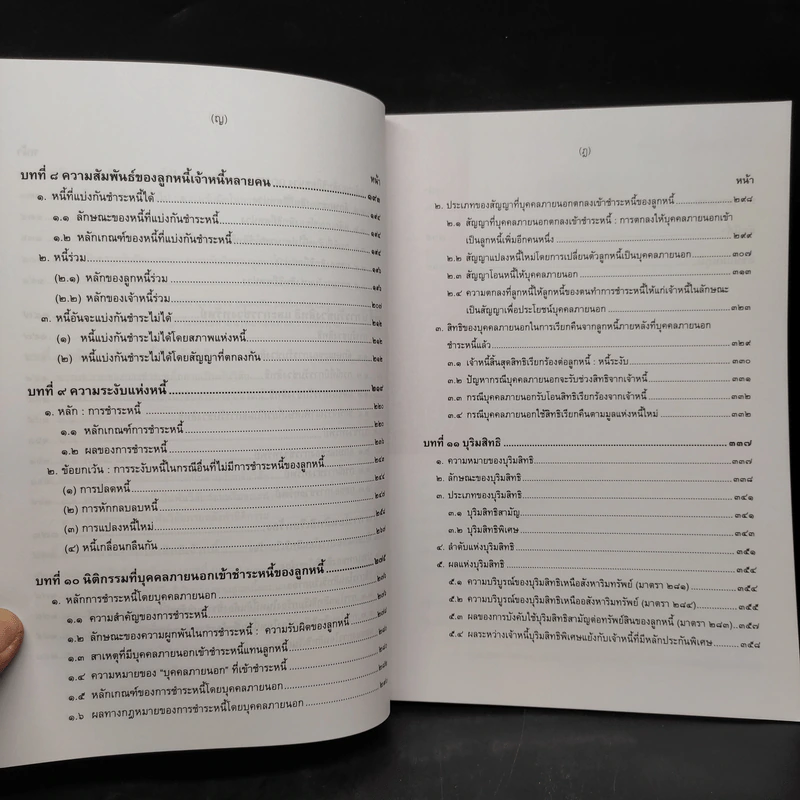 (ญ)
หน้า
บทที่ ๘ ความสัมพันธ์ของลูกหนี้เจ้าหนี้หลายคน
๑. หนี้ที่แบ่งกันชำระหนี้ได้
๑.๑ ลักษณะของหนี้ที่แบ่งกันชำระหนี้
๑.๒ หลักเกณฑ์ของหนี้ที่แบ่งกันชำระหนี้
๒. หนี้ร่วม
(๒.๑) หลักของลูกหนี้ร่วม
(๒.๒) หลักของเจ้าหนี้ร่วม
๓. หนี้อันจะแบ่งกันชำระไม่ได้
(๑) หนี้แบ่งกันชำระไม่ได้โดยสภาพแห่งหนี้
(๒) หนี้แบ่งกันชำระไม่ได้โดยสัญญาที่ตกลงกัน
บทที่ ๙ ความระงับแห่งหนี้
๑. หลัก : การชำระหนี้
๑.๑ หลักเกณฑ์การชำระหนี้
๑.๒ ผลของการชำระหนี้
๒. ข้อยกเว้น : การระงับหนี้ในกรณีอื่นที่ไม่มีการชำระหนี้ของลูกหนี้
(๑) การปลดหนี้
(๒) การหักกลบลบหนี้
(๓) การแปลงหนี้ใหม่
(๔) หนี้เกลื่อนกลืนกัน
บทที่ ๑๐ นิติกรรมที่บุคคลภายนอกเข้าชำระหนี้ของลูกหนี้
๑. หลักการชำระหนี้โดยบุคคลภายนอก
๑.๑ ความสำคัญของการชำระหนี้
๑.๒ ลักษณะของความผูกพันในการชำระหนี้ : ความรับผิดของลูกหนี้
๑.๓ สาเหตุที่มีบุคคลภายนอกเข้าชำระหนี้แทนลูกหนี้
๑.๔ ความหมายของ "บุคคลภายนอก" ที่เข้าชำระหนี้
๑.๕ หลักเกณฑ์ของการชำระหนี้โดยบุคคลภายนอก
๑.๖ ผลทางกฎหมายของการชำระหนี้โดยบุคคลภายนอก
(ฎ)
หน้า
๒. ประเภทของสัญญาที่บุคคลภายนอกตกลงเข้าชำระหนี้ของลูกหนี้ ๒๙๘
๒.๑ สัญญาที่บุคคลภายนอกตกลงเข้าชำระหนี้ : การตกลงให้บุคคลภายนอกเข้า
เป็นลูกหนี้เพิ่มอีกคนหนึ่ง ๒๙๙
๒.๒ สัญญาแปลงหนี้ใหม่โดยการเปลี่ยนตัวลูกหนี้เป็นบุคคลภายนอก ๓๐๗
๒.๓ สัญญาโอนหนี้ให้บุคคลภายนอก ๓๑๓
๒.๔ ความตกลงที่ลูกหนี้ให้ลูกหนี้ของตนทำการชำระหนี้ให้แก่เจ้าหนี้ในลักษณะ
เป็นสัญญาเพื่อประโยชน์บุคคลภายนอก ๓๒๓
๓. สิทธิของบุคคลภายนอกในการเรียกคืนจากลูกหนี้ภายหลังที่บุคคลภายนอก
ชำระหนี้แล้ว ๓๒๙
๓.๑ เจ้าหนี้สิ้นสุดสิทธิเรียกร้องต่อลูกหนี้ : หนี้ระงับ ๓๓๐
๓.๒ ปัญหากรณีบุคคลภายนอกจะรับช่วงสิทธิจากเจ้าหนี้ ๓๓๑
๓.๓ กรณีบุคคลภายนอกรับโอนสิทธิเรียกร้องจากเจ้าหนี้ ๓๓๒
๓.๔ กรณีบุคคลภายนอกใช้สิทธิเรียกคืนตามมูลแห่งหนี้ใหม่ ๓๓๒
บทที่ ๑๑ บุริมสิทธิ ๓๓๗
๑. ความหมายของบุริมสิทธิ ๓๓๗
๒. ลักษณะของบุริมสิทธิ ๓๓๘
๓. ประเภทของบุริมสิทธิ ๓๔๑
๓.๑ บุริมสิทธิสามัญ ๓๔๑
๓.๒ บุริมสิทธิพิเศษ ๓๔๓
๔. ลำดับแห่งบุริมสิทธิ ๓๕๑
๕. ผลแห่งบุริมสิทธิ ๓๕๔
๕.๑ ความบริบูรณ์ของบุริมสิทธิเหนือสังหาริมทรัพย์ (มาตรา ๒๘๑) ๓๕๔
๕.๒ ความบริบูรณ์ของบุริมสิทธิเหนืออสังหาริมทรัพย์ (มาตรา ๒๘๔) ๓๕๕
๕.๓ ผลของการบังคับใช้บุริมสิทธิสามัญต่อทรัพย์สินของลูกหนี้ (มาตรา ๒๘๓) ๓๕๗
๕.๔ ผลระหว่างเจ้าหนี้บุริมสิทธิพิเศษแย้งกับเจ้าหนี้ที่มีหลักประกันพิเศษ ๓๕๘